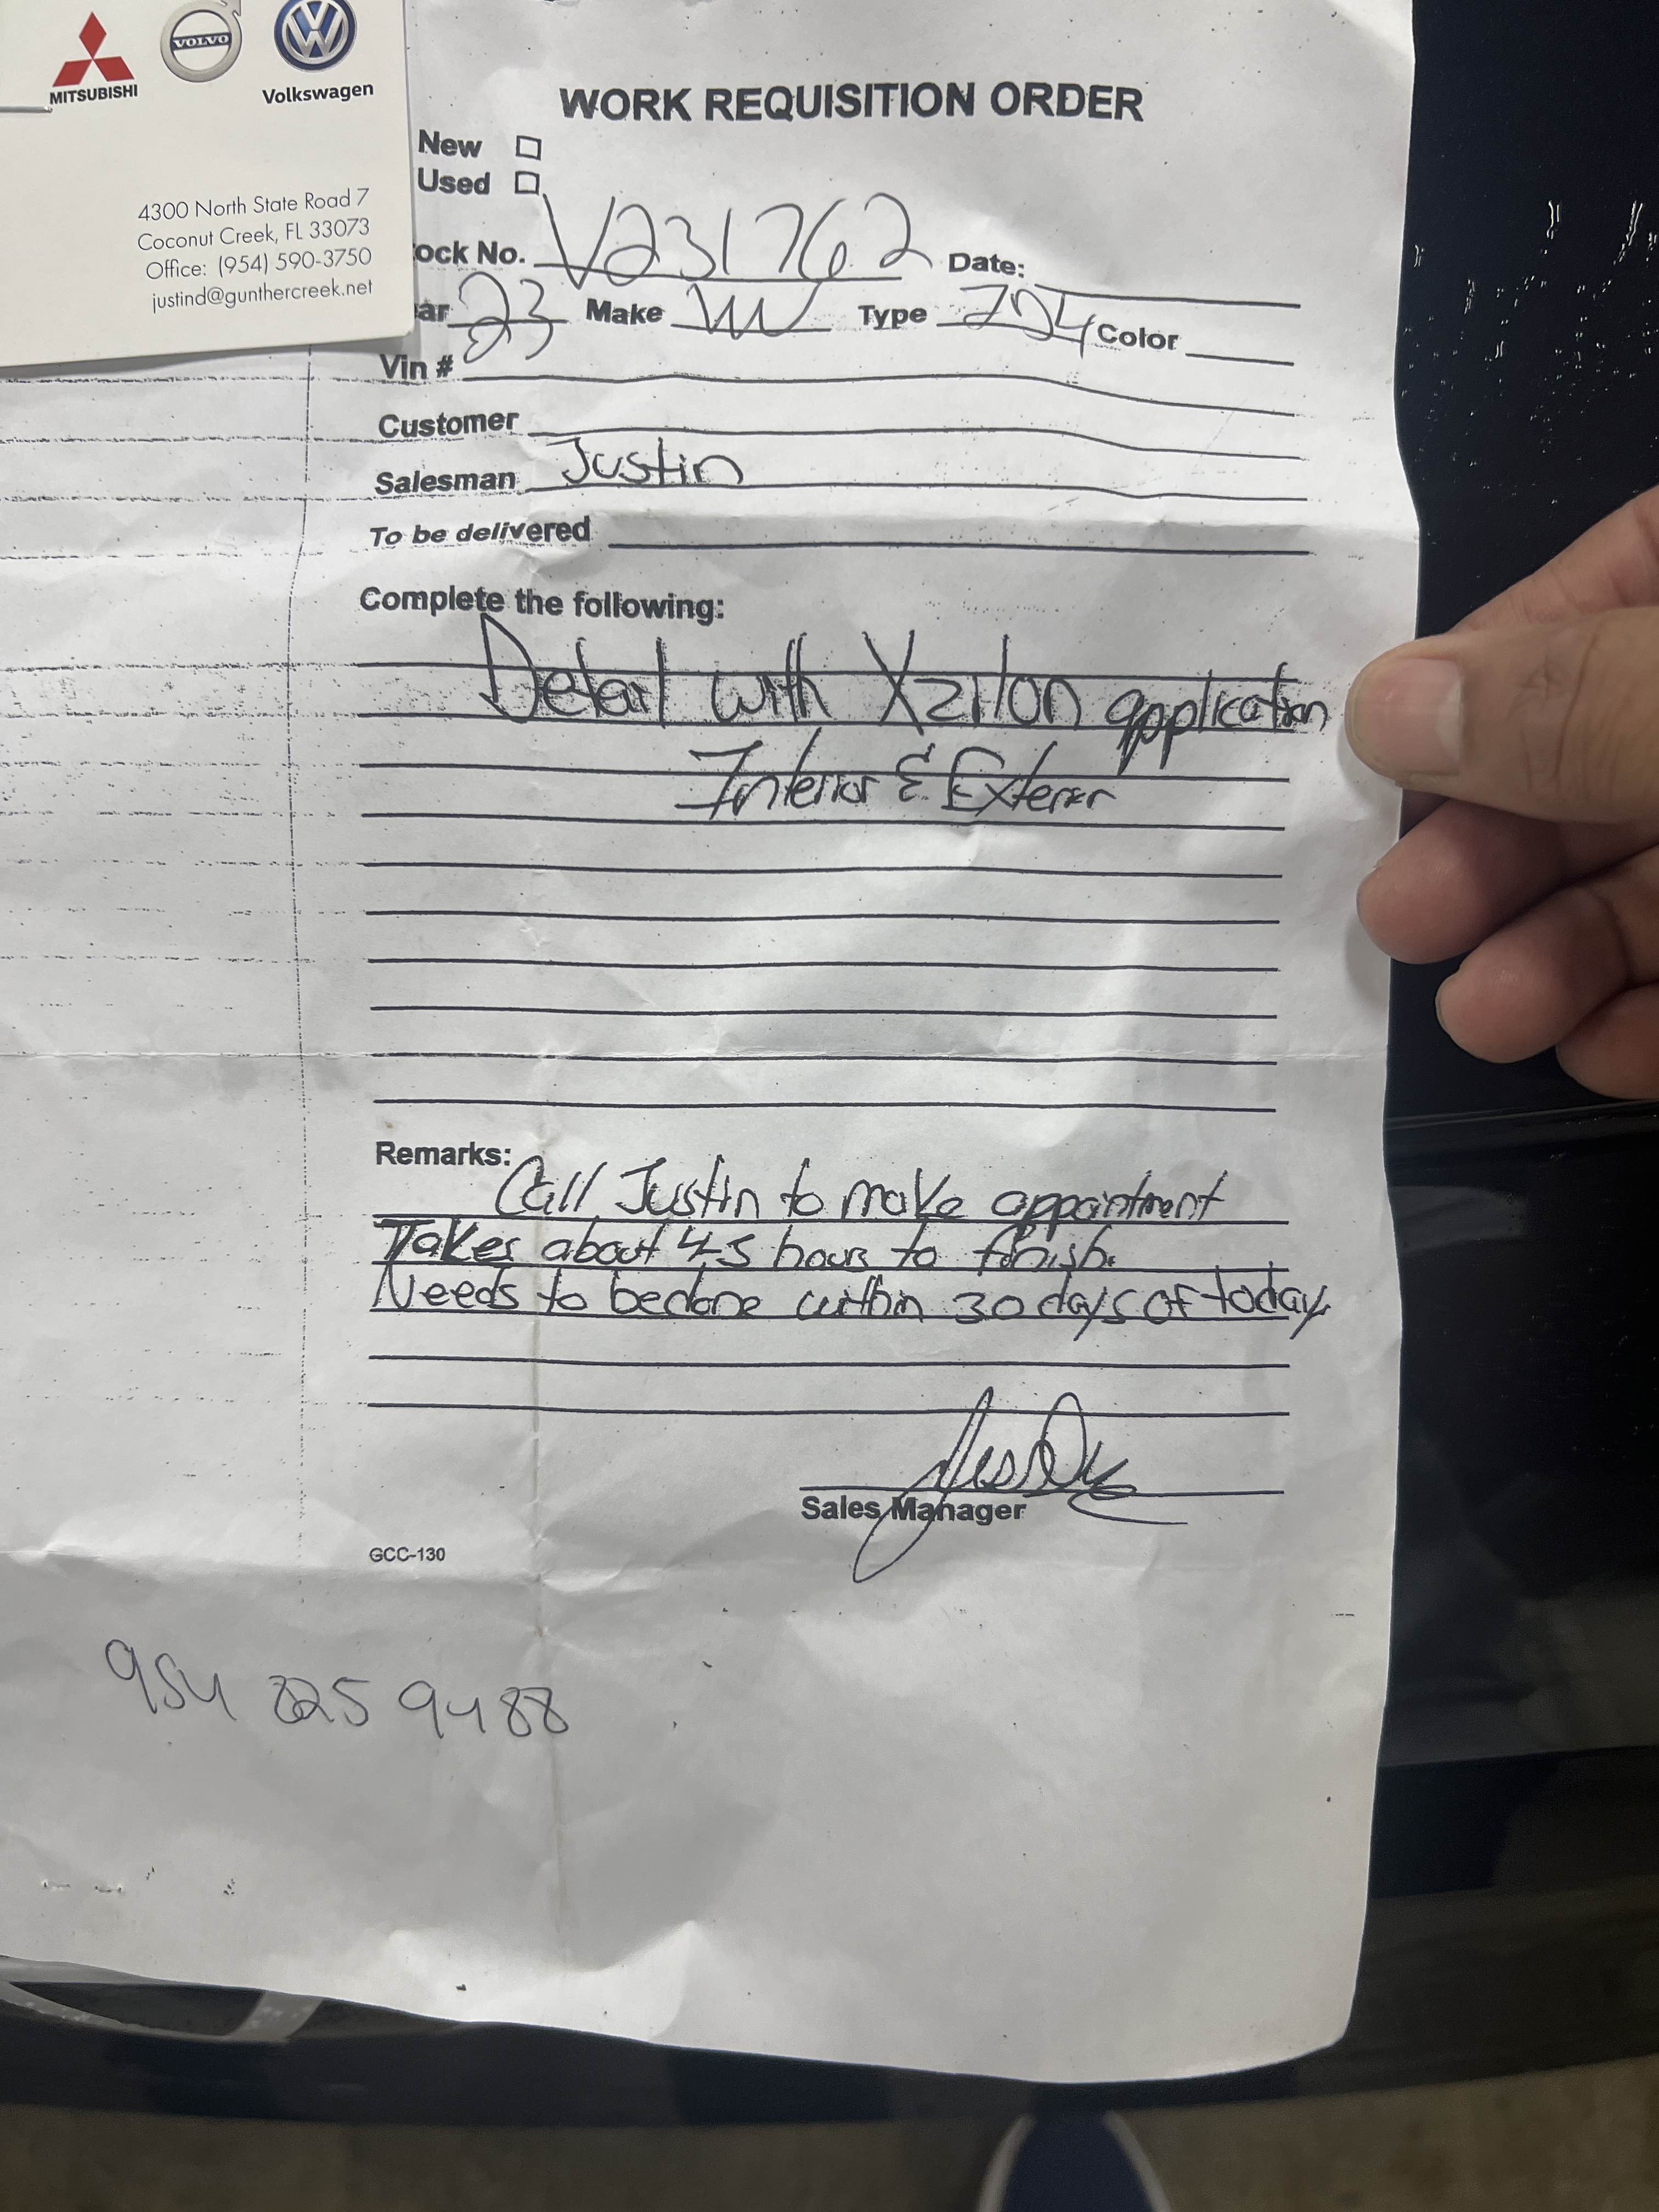 MITSUBISHI
VOLVO
Volkswagen
4300 North State Road 7
Coconut Creek, FL 33073
Office: (954) 590-3750
justind@gunthercreek.net
WORK REQUISITION ORDER
New
Used
ock No. V231762 Date:
ar 23 Make VW Type ID4 Color
Vin #
Customer
Salesman Justin
To be delivered
Complete the following:
Detail with Xzilon application
Interior & Exterior
Remarks:
Call Justin to make appointment
Takes about 4-5 hours to finish.
Needs to be done within 30 days of today.
Sales Manager
GCC-130
954 825 9488